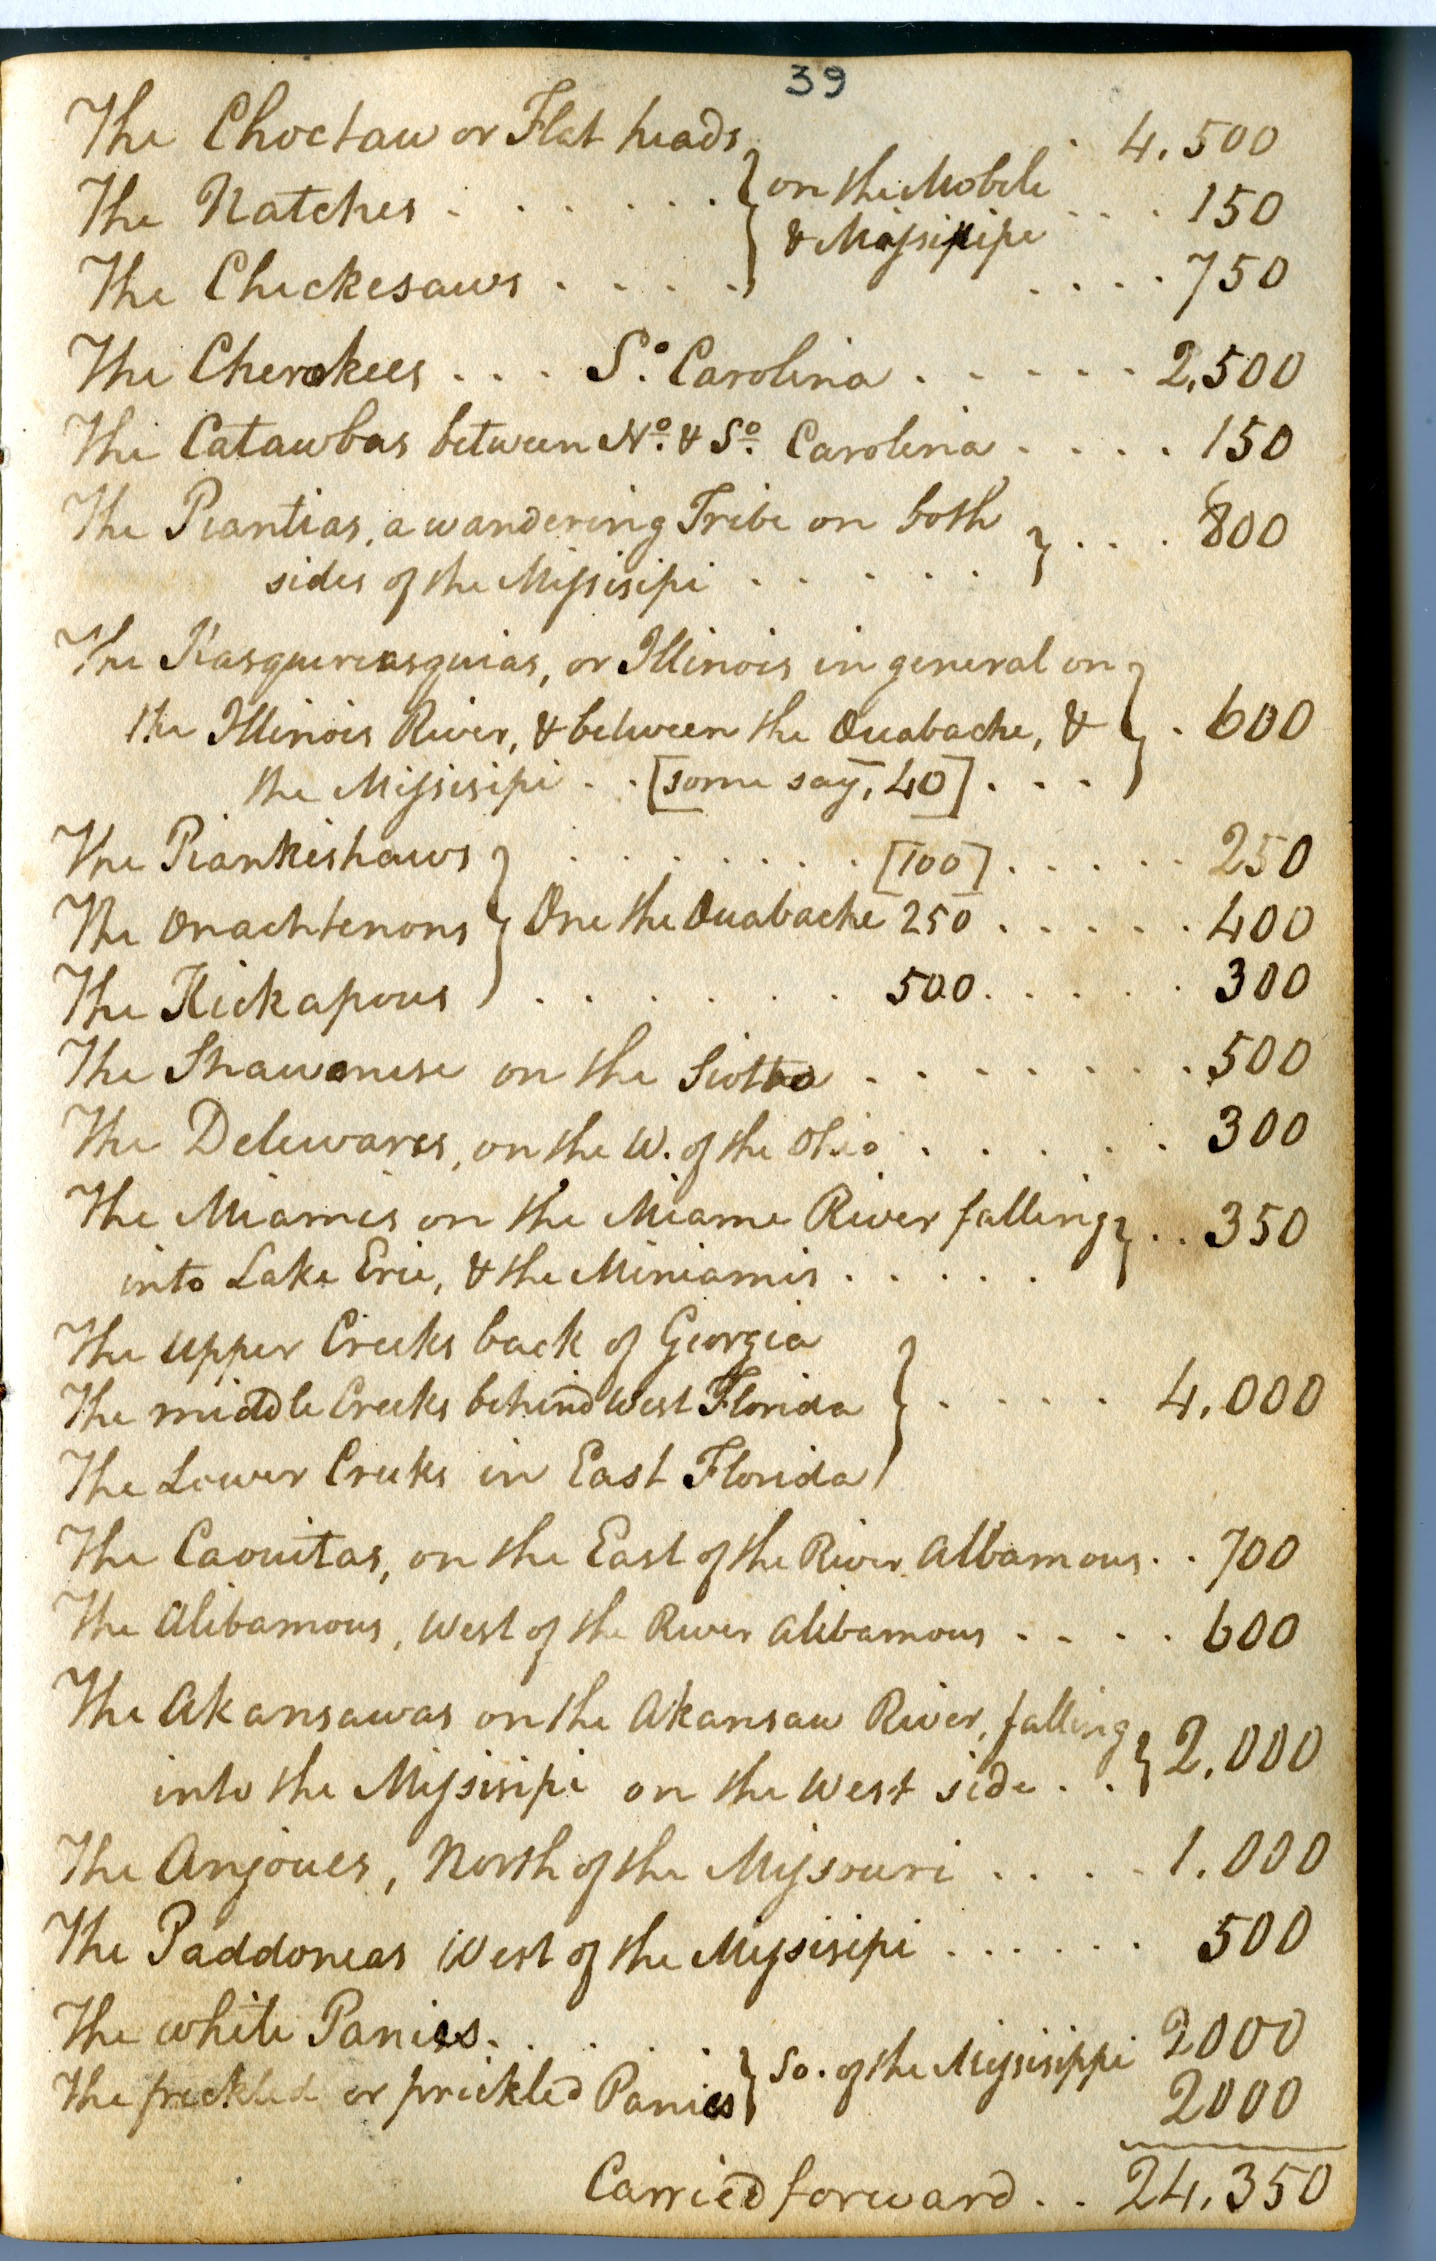 39
The Choctaw or Flat heads . 4.500
The Natches . . . . . . . } on the Mobile . . . 150
& Missisipipe
The Chickesaws . . . . . . . . . 750
The Cherokees . . . So. Carolina . . . . . . 2,500
The Catawbas between No. & So. Carolina . . . . 150
The Piantias, a wandering Tribe on both } . . . 800
sides of the Missisipi . . . . . .
The Kasqueresasquias, or Illinois in general on
the Illinois River, & between the Ouabache, & } . 600
the Missisipi . . [some say, 40] . . .
The Piankishaws } . . . . . . . [100] . . . . . 250
The Ouachtenons } One the Ouabache 250 . . . . . 400
The Kickapous ) . . . . . . . 500 . . . . . 300
The Shawanese on the Siotto . . . . . . . . 500
The Delewares, on the W. of the Ohio . . . . . 300
The Miamis on the Miame River falling } . . 350
into Lake Erie, & the Miniamis . . . . .
The upper Creeks back of Georgia
The middle Creeks behind West Florida } . . . . . 4.000
The Lower Creeks in East Florida
The Caouitas, on the East of the River Albamous . . 700
The Alibamous, West of the River Alibamous . . . . 600
The Akansawas on the Akansaw River, falling } 2.000
into the Missisipi on the West side . .
The Anjoues, North of the Missouri . . . . 1.000
The Paddoneas West of the Missisipi . . . . . . 500
The white Panies . . . . . } So. of the Missisippi 2000
The freckled or prickled Panies } 2000
Carried forward . . 24.350